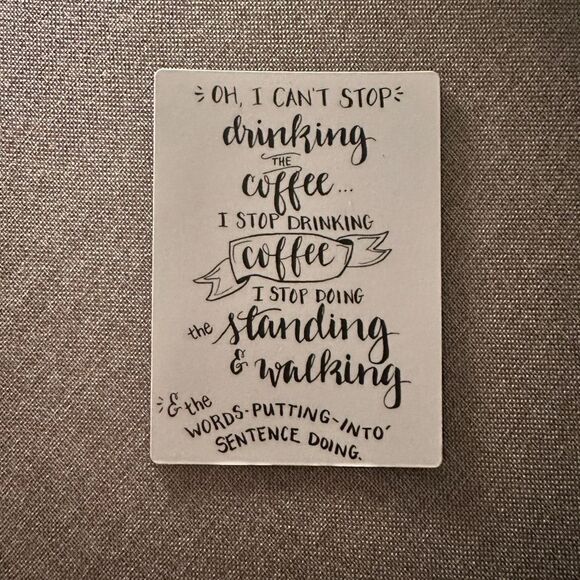 OH, I CAN'T STOP
drinking
THE
coffee...
I STOP DRINKING
coffee
I STOP DOING
the standing
& walking
& the
WORDS-PUTTING-INTO
SENTENCE DOING.